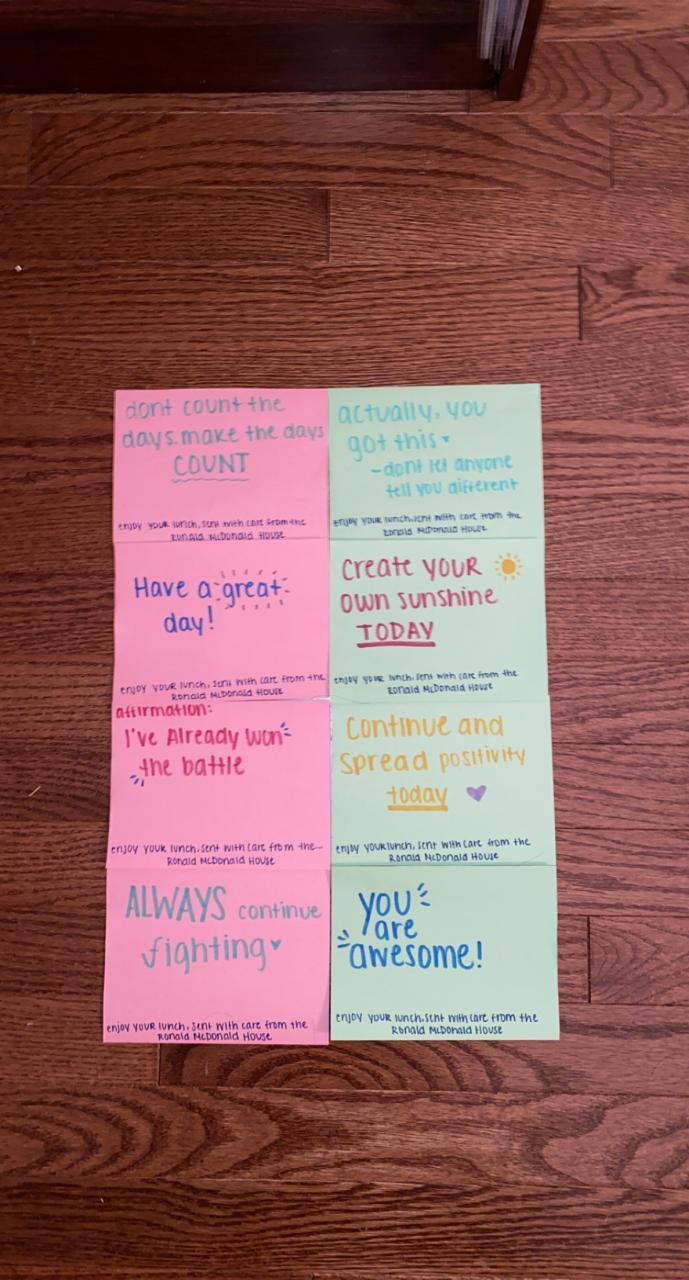 dont count the
days.make the days
COUNT
enjoy your lunch, sent with care from the
Ronald McDonald House
actually, you
got this
-dont let anyone
tell you different
enjoy your lunch.sent with care from the
Ronald McDonald House
Have a great
day!
enjoy your lunch, sent with care from the
Ronald McDonald House
Create your
own sunshine
TODAY
enjoy your lunch, sent with care from the
Ronald McDonald House
affirmation:
I've Already won
the battle
enjoy your lunch.sent with care from the
Ronald McDonald House
Continue and
spread positivity
today
enjoy your lunch, sent with care from the
Ronald McDonald House
ALWAYS continue
fighting
enjoy your lunch, sent with care from the
Ronald McDonald House
you
are
awesome!
enjoy your lunch.sent with care from the
Ronald McDonald House